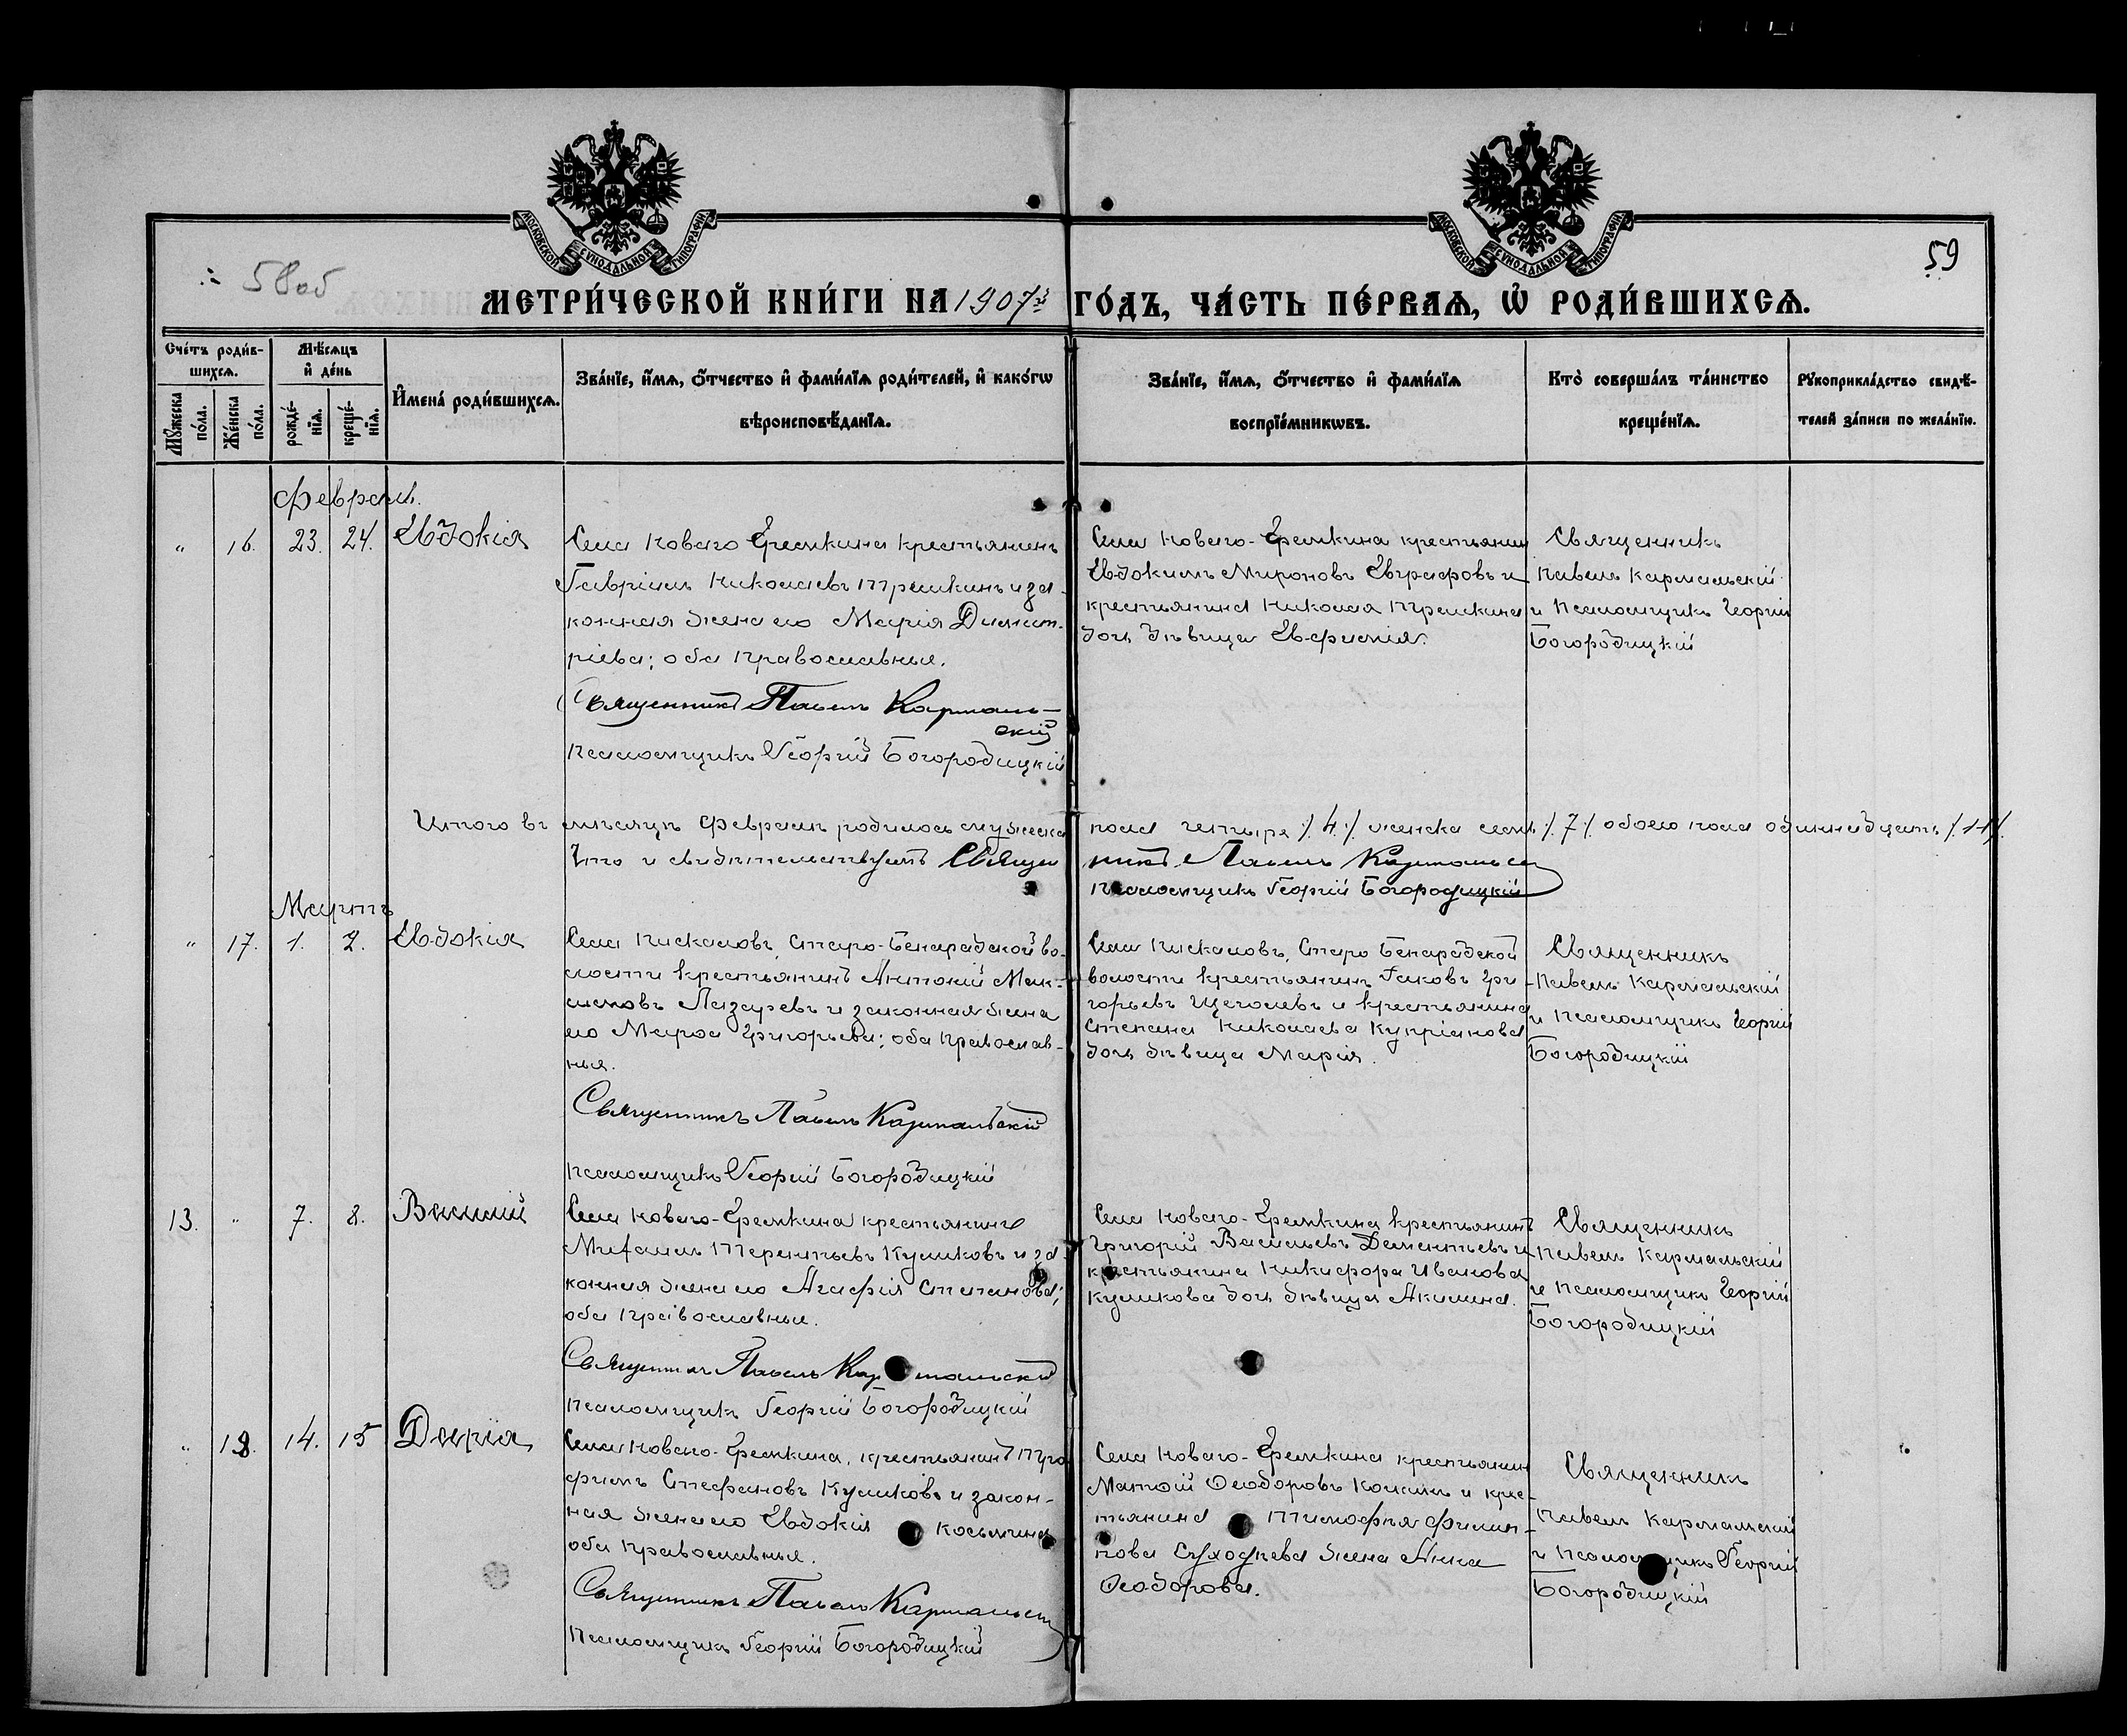 58об
59
МОСКОВСКОЙ СУНОДАЛЬНОЙ ТИПОГРАФІИ
МОСКОВСКОЙ СУНОДАЛЬНОЙ ТИПОГРАФІИ
МЕТРИ́ЧЕСКОЙ КНИ́ГИ НА 1907й ГО́ДЪ, ЧА́СТЬ ПЕ́РВАѦ, Ѡ҆ РОДИ́ВШИХСѦ.
Сче́тъ роди́в-
шихсѧ.
Мѣ́сѧцъ
и҆ де́нь
Мꙋ́жеска
по́ла.
Же́нска
по́ла.
рожде́-
нїѧ.
креще́-
нїѧ.
И҆мена̀ роди́вшихсѧ.
Зва́нїе, и҆́мѧ, ѻ҆́тчество и҆ фами́лїѧ роди́телей, и҆ како́гѡ
вѣроисповѣ́данїѧ.
Зва́нїе, и҆́мѧ, ѻ҆́тчество и҆ фами́лїѧ
воспрїе́мникѡвъ.
Кто̀ соверша́лъ та́инство
креще́нїѧ.
Рꙋкоприкла́дство свидѣ́-
телей за́писи по жела́нїю.
Февраль.
„ 16. 23. 24. Евдокія
Села Новаго Еремкина крестьянинъ
Гавріилъ Николаевъ Трешкинъ и за-
конная жена его Марія Димит-
ріева; оба православные.
Священникъ Павелъ Кармаль-
скій
Псаломщикъ Георгій Богородицкій
Села Новаго-Еремкина крестьянин
Евдокимъ Мироновъ Евграфовъ и
крестьянина Николая Трешкина
дочь дѣвица Евфимія.
Священникъ
Павелъ Кармальскій
и Псаломщикъ Георгій
Богородицкій
Итого въ мѣсяцѣ Февралѣ родилось мужеска пола четыре /.4./ женска семь /.7./ обоего пола одиннадцать /.11/.
Что и свидѣтельствуютъ Священникъ Павелъ Кармальскій
Псаломщикъ Георгій Богородицкій
Мартъ
„ 17. 1. 2. Евдокія
Села Пискаловъ, Старо-Бенарадской во-
лости крестьянинъ Антоній Мак-
симовъ Лазаревъ и законная жена
его Мароа Григорьева; оба православ-
ные.
Священникъ Павелъ Кармальскій
Псаломщикъ Георгій Богородицкій
Села Пискаловъ, Старо Бенарадской
волости крестьянинъ Іаковъ Гри-
горьевъ Щеголевъ и крестьянина
Степана Николаева Купріянова
дочь дѣвица Марія.
Священникъ
Павелъ Кармальскій
и Псаломщикъ Георгій
Богородицкій
13. „ 7. 8. Василій
Села Новаго-Еремкина крестьянинъ
Михаилъ Терентьевъ Куликовъ и за-
конная жена его Агафія Степанова;
оба православные.
Священникъ Павелъ Кармальскій
Псаломщикъ Георгій Богородицкій
Села Новаго-Еремкина крестьянинъ
Григорій Васильевъ Дементьевъ и
крестьянина Никифора Иванова
Куликова дочь дѣвица Акилина.
Священникъ
Павелъ Кармальскій
и Псаломщикъ Георгій
Богородицкій
„ 18. 14. 15 Дарія
Села Новаго-Еремкина, крестьянинъ Тро-
фимъ Стефановъ Куликовъ и закон-
ная жена его Евдокія Косьмина
оба православные.
Священникъ Павелъ Кармальскій
Псаломщикъ Георгій Богородицкій
Села Новаго-Еремкина крестьянин
Матѳій Ѳеодоровъ и крес-
тьянина Тимофея Филип-
пова жена Анна
Ѳеодорова.
Священникъ
Павелъ Кармальскій
и Псаломщикъ Георгій
Богородицкій